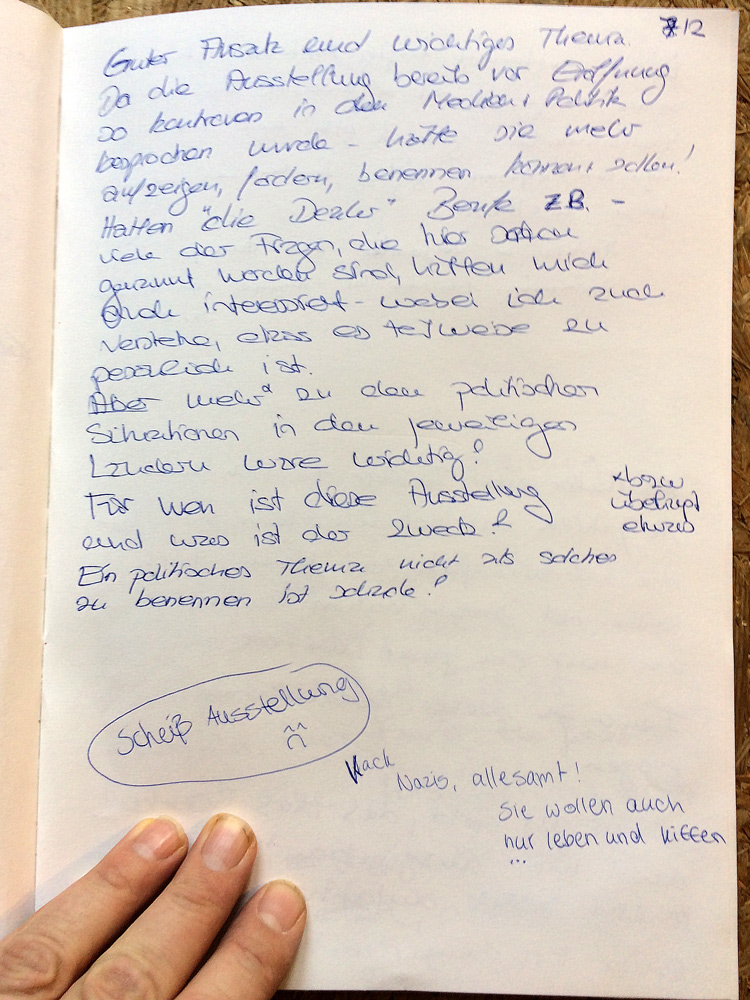 7/12
Guter Ansatz und wichtiges Thema.
Da die Ausstellung bereits vor Eröffnung
so kontrovers in den Medien + Politik
besprochen wurde - hätte sie mehr
aufzeigen, fordern, benennen können + sollen!
Hatten "die Dealer" Berufe z.B. -
viele der Fragen, die hier schon
genannt worden sind, hätten mich
auch interessiert - wobei ich auch
verstehe, dass es teilweise zu
persönlich ist.
Aber mehr* zu den politischen
Situationen in den jeweiligen
Ländern wäre wichtig!
*bzw
überhaupt
etwas
Für wen ist diese Ausstellung
und was ist der Zweck?
Ein politisches Thema nicht als solches
zu benennen ist schade!
Scheiß Ausstellung
Kack
Nazis, allesamt!
Sie wollen auch
nur leben und kiffen
...